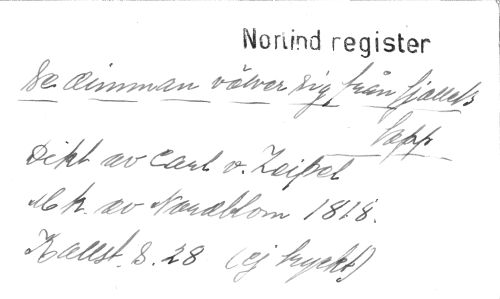 Norlind register
Se dimman välver sig från fjällets
topp
Dikt av Carl v. Zeipel
Mk. av Nordblom 1818.
Kallst. S. 28 (ej tryckt)